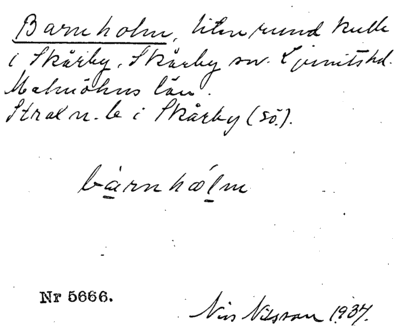 Barnholm, liten rund kulle
i Skårby, Skårby sn. Ljunitshd.
Malmöhus län.
Strax n. b. i Skårby (sö.).
bàrnhòlm
Nr 5666.
Nils Nilsson 1937.